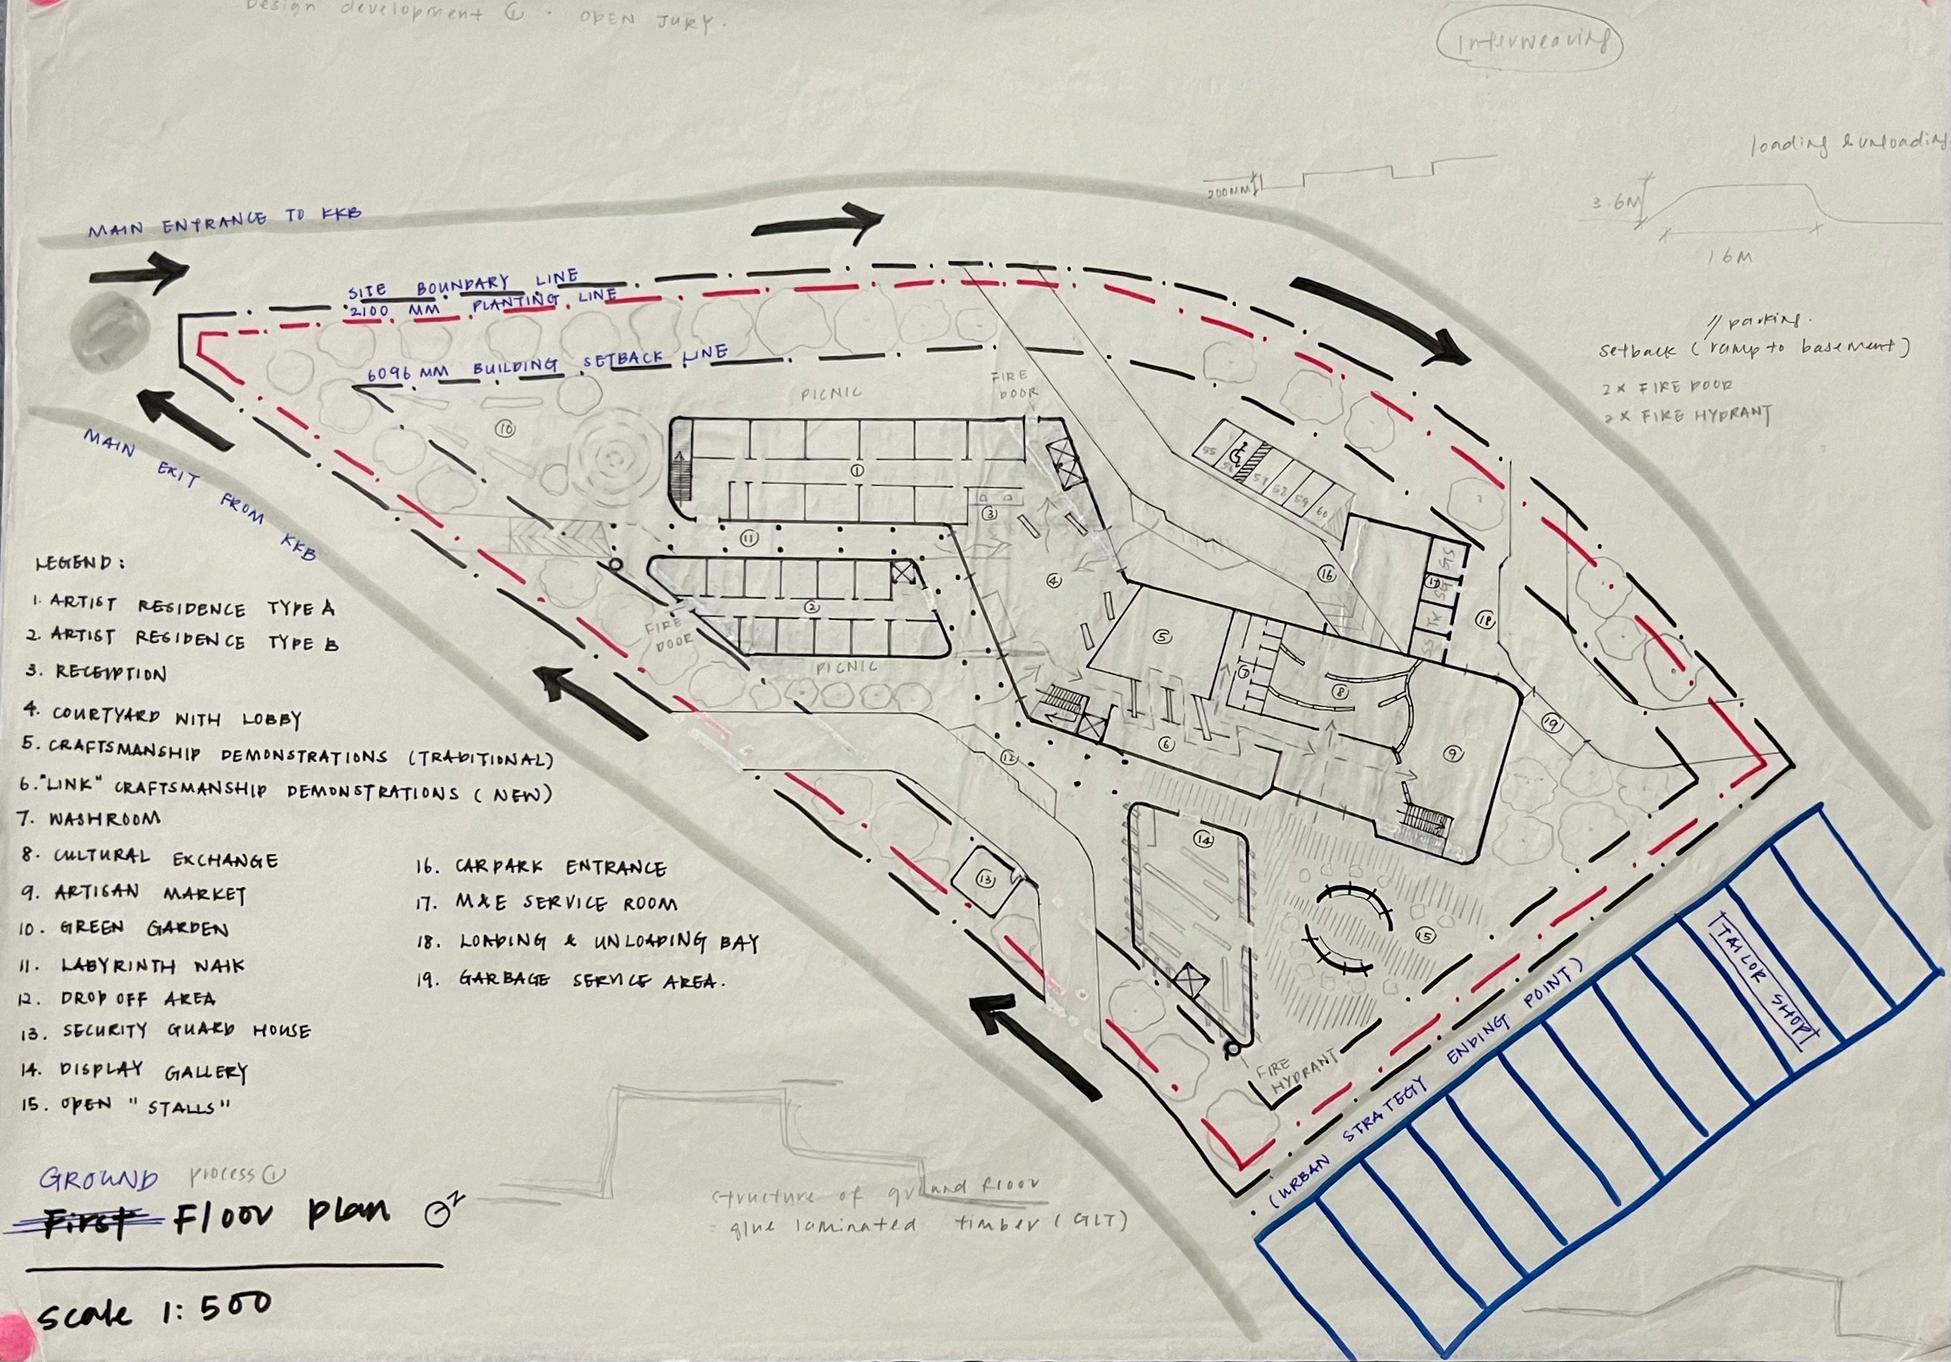 Design development ① . OPEN JURY.
Interweaving
loading & unloading
200MM
3.6M
16M
// parking.
setback (ramp to basement)
2x FIRE DOOR
2x FIRE HYDRANT
MAIN ENTRANCE TO KKB
SITE BOUNDARY LINE
2100 MM PLANTING LINE
6096 MM BUILDING SETBACK LINE
MAIN EXIT FROM KKB
PICNIC
FIRE DOOR
10
1
3
11
4
2
FIRE DOOR
PICNIC
55
56
57
58
59
60
16
17
18
5
7
8
6
9
19
12
13
14
15
FIRE HYDRANT
TAILOR SHOP
(URBAN STRATEGY ENDING POINT)
LEGEND:
1. ARTIST RESIDENCE TYPE A
2. ARTIST RESIDENCE TYPE B
3. RECEIPTION
4. COURTYARD WITH LOBBY
5. CRAFTSMANSHIP DEMONSTRATIONS (TRADITIONAL)
6. "LINK" CRAFTSMANSHIP DEMONSTRATIONS (NEW)
7. WASHROOM
8. CULTURAL EXCHANGE
9. ARTISAN MARKET
10. GREEN GARDEN
11. LABYRINTH NAIK
12. DROP OFF AREA
13. SECURITY GUARD HOUSE
14. DISPLAY GALLERY
15. OPEN "STALLS"
16. CARPARK ENTRANCE
17. M&E SERVICE ROOM
18. LOADING & UNLOADING BAY
19. GARBAGE SERVICE AREA.
GROUND process ①
First Floor plan
N
scale 1:500
structure of ground floor
= glue laminated timber (GLT)